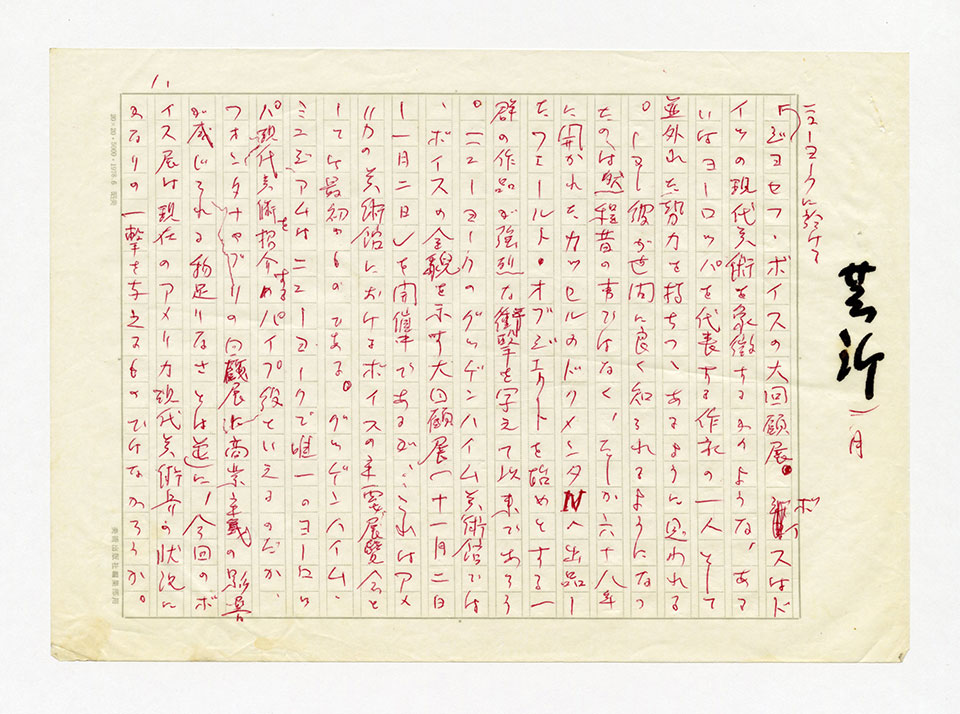 芸新
月
ニューヨークに於けて
「ジョセフ・ボイスの大回顧展。ボイスはド
イツの現代美術を象徴するかのような、ある
いはヨーロッパを代表する作家の一人として
並外れた勢力を持ちつゝあるように思われる
。しかし彼が世間に良く知られるようになっ
たのは然程昔の事ではなく、たしか六十八年
に開かれたカッセルのドクメンタⅣへ出品し
たフェールト・オブジェクトを始めとする一
群の作品が強烈な衝撃を与えて以来であろう
。ニューヨークのグッゲンハイム美術館では
、ボイスの全貌を示す大回顧展(十一月二日
ー一月二日)を開催中であるが、これはアメ
リカの美術館におけるボイスの主要展覧会と
しては最初のものである。グッゲンハイム・
ミュジアムはニューヨークで唯一のヨーロッ
パ現代美術を招介するパイプ役といえるのだが、
フォンタナやブリの回顧展に商業主義の影響
が感じられる物足りなさとは逆に、今回のボ
イス展は現在のアメリカ現代美術界の状況に
かなりの一撃を与えるものではなかろうか。
20×20・5000・1978.6
美術出版社編集部用